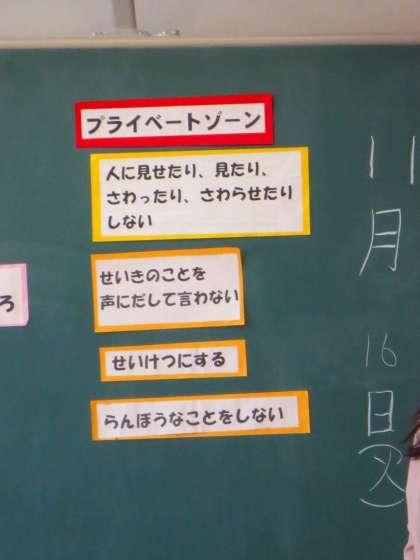 プライベートゾーン
人に見せたり、見たり、
さわったり、さわらせたり
しない
せいきのことを
声にだして言わない
せいけつにする
らんぼうなことをしない
ろ
11
月
16
日
(火)